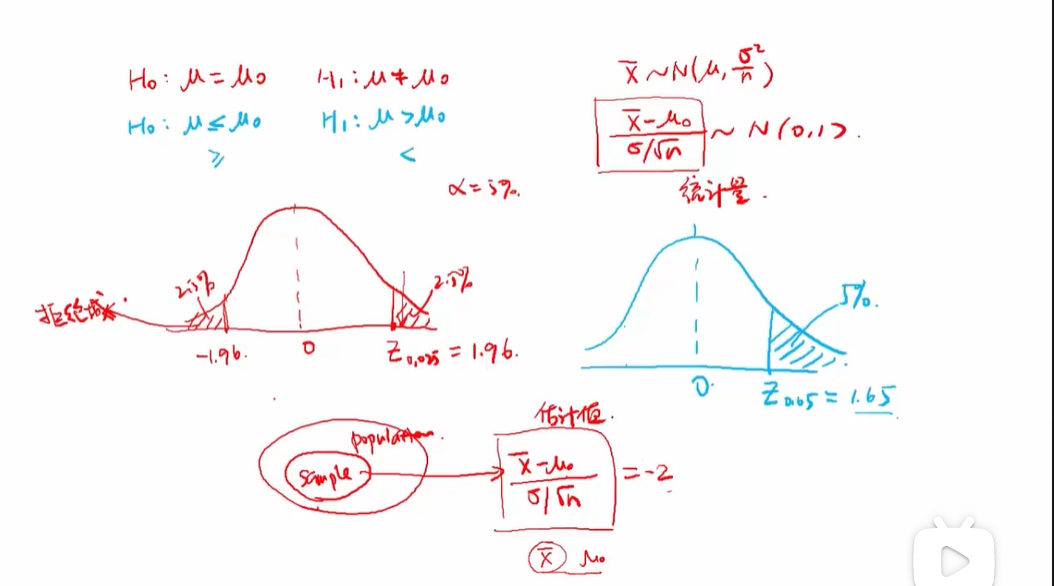 H₀: μ = μ₀  H₁: μ ≠ μ₀
H₀: μ ≤ μ₀  H₁: μ > μ₀
≥  <
X̄ ~ N(μ, σ²/n)
(X̄ - μ₀)/(σ/√n) ~ N(0,1).
统计量.
α = 5%.
2.5%
2.5%
拒绝域
-1.96.
0
Z₀.₀₂₅ = 1.96.
5%.
0.
Z₀.₀₅ = 1.65
population.
sample
估计值.
(X̄ - μ₀)/(σ/√n) = -2
X̄ μ₀